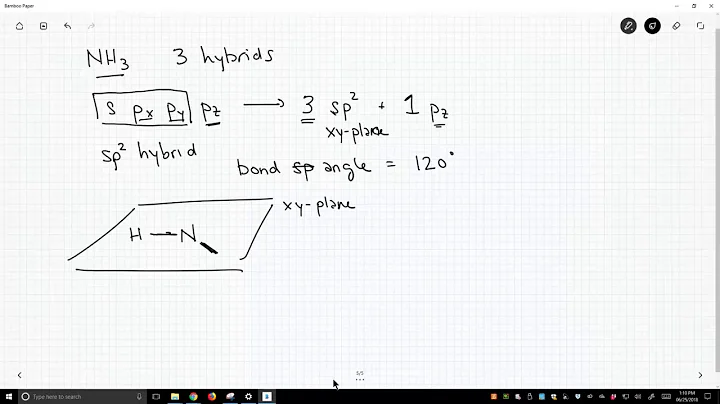 Bamboo Paper
NH3 3 hybrids
s px py pz → 3 sp² + 1 pz
xy-plane
sp² hybrid
bond angle = 120°
xy-plane
H — N
5/5
Type here to search
1:10 PM
06/25/2018